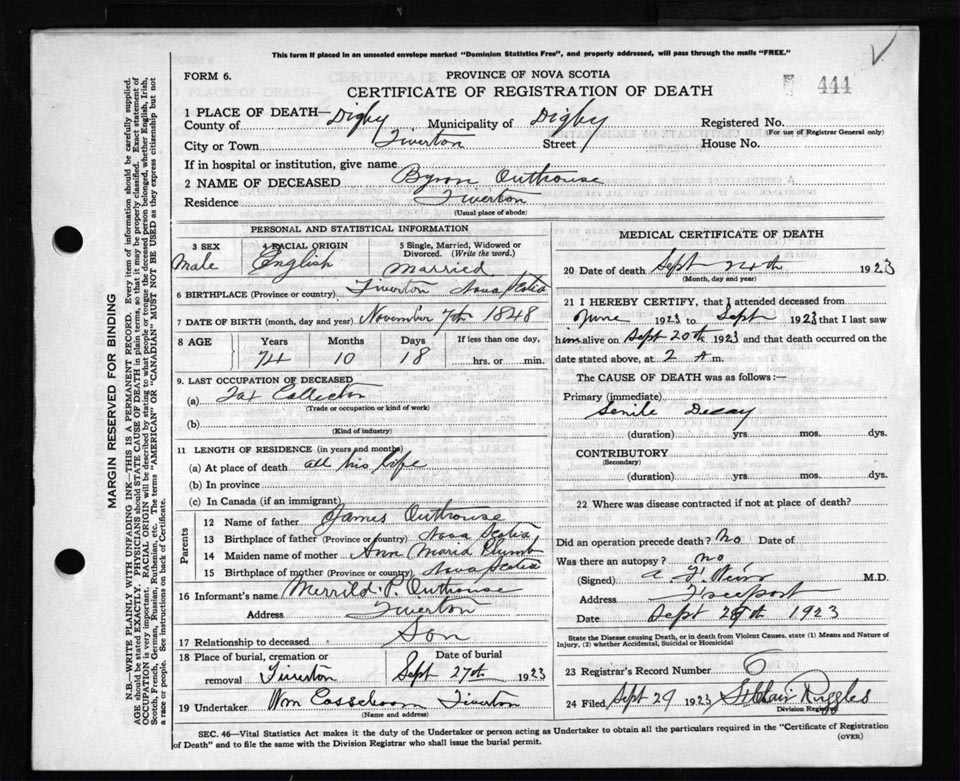 This form if placed in an unsealed envelope marked "Dominion Statistics Free", and properly addressed, will pass through the mails "FREE."
FORM 6.
PROVINCE OF NOVA SCOTIA
CERTIFICATE OF REGISTRATION OF DEATH
444
1 PLACE OF DEATH—
County of Digby Municipality of Digby Registered No.
(For use of Registrar General only)
City or Town Tiverton Street House No.
If in hospital or institution, give name
2 NAME OF DECEASED Byron Outhouse
Residence Tiverton
(Usual place of abode)
PERSONAL AND STATISTICAL INFORMATION
3 SEX 4 RACIAL ORIGIN 5 Single, Married, Widowed or Divorced. (Write the word.)
Male English Married
6 BIRTHPLACE (Province or country) Tiverton Nova Scotia
7 DATE OF BIRTH (month, day and year) November 7th 1848
8 AGE Years Months Days If less than one day,
74 10 18 hrs. or min.
9. LAST OCCUPATION OF DECEASED
(a) Tax Collector
(Trade or occupation or kind of work)
(b)
(Kind of industry)
11 LENGTH OF RESIDENCE (in years and months)
(a) At place of death all his life
(b) In province
(c) In Canada (if an immigrant)
Parents
12 Name of father James Outhouse
13 Birthplace of father (Province or country) Nova Scotia
14 Maiden name of mother Ann Maria
15 Birthplace of mother (Province or country) Nova Scotia
16 Informant's name Merrild P. Outhouse
Address Tiverton
17 Relationship to deceased Son
18 Place of burial, cremation or removal Tiverton Date of burial Sept 27th 1923
19 Undertaker Wm Casseboom Tiverton
(Name and address)
MEDICAL CERTIFICATE OF DEATH
20 Date of death Sept 24th 1923
(Month, day and year)
21 I HEREBY CERTIFY, that I attended deceased from
June 1923 to Sept 1923 that I last saw
him alive on Sept 20th 1923 and that death occurred on the
date stated above, at 2 A m.
The CAUSE OF DEATH was as follows:—
Primary (immediate)
Senile Decay
(duration) yrs mos. dys.
CONTRIBUTORY
(Secondary)
(duration) yrs. mos. dys.
22 Where was disease contracted if not at place of death?
Did an operation precede death? No Date of
Was there an autopsy? no
(Signed) M.D.
Address Freeport
Date Sept 1923
State the Disease causing Death, or in death from Violent Causes, state (1) Means and Nature of
Injury, (2) whether Accidental, Suicidal or Homicidal
23 Registrar's Record Number 6
24 Filed Sept 29 1923 St Clair Ruggles
Division Registrar
SEC. 46—Vital Statistics Act makes it the duty of the Undertaker or person acting as Undertaker to obtain all the particulars required in the "Certificate of Registration
of Death" and to file the same with the Division Registrar who shall issue the burial permit.
(OVER)
MARGIN RESERVED FOR BINDING
N.B.—WRITE PLAINLY WITH UNFADING INK—THIS IS A PERMANENT RECORD. Every item of information should be carefully supplied.
AGE should be stated EXACTLY. PHYSICIANS should STATE CAUSE OF DEATH in plain terms, so that it may be properly classified. Exact statement of
OCCUPATION is very important. RACIAL ORIGIN will be described by stating to what people or tongue the deceased person belonged, whether English, Irish,
Scotch, French, German, Russian, Ruthenian, etc. The terms "AMERICAN" OR "CANADIAN" MUST NOT BE USED as they express citizenship but not
a race or people. See instructions on back of Certificate.